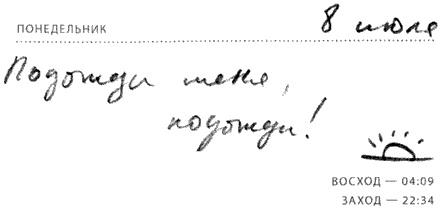 ПОНЕДЕЛЬНИК 8 июля
Подожди меня,
подожди!
ВОСХОД — 04:09
ЗАХОД — 22:34